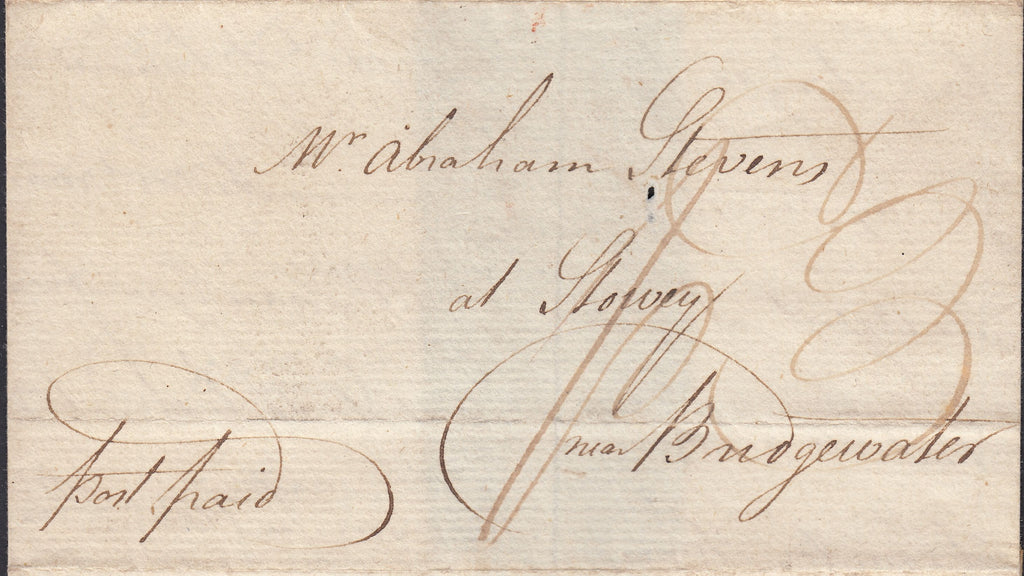 Mr. Abraham Stevens
at Stowey
near Bridgewater
Post paid